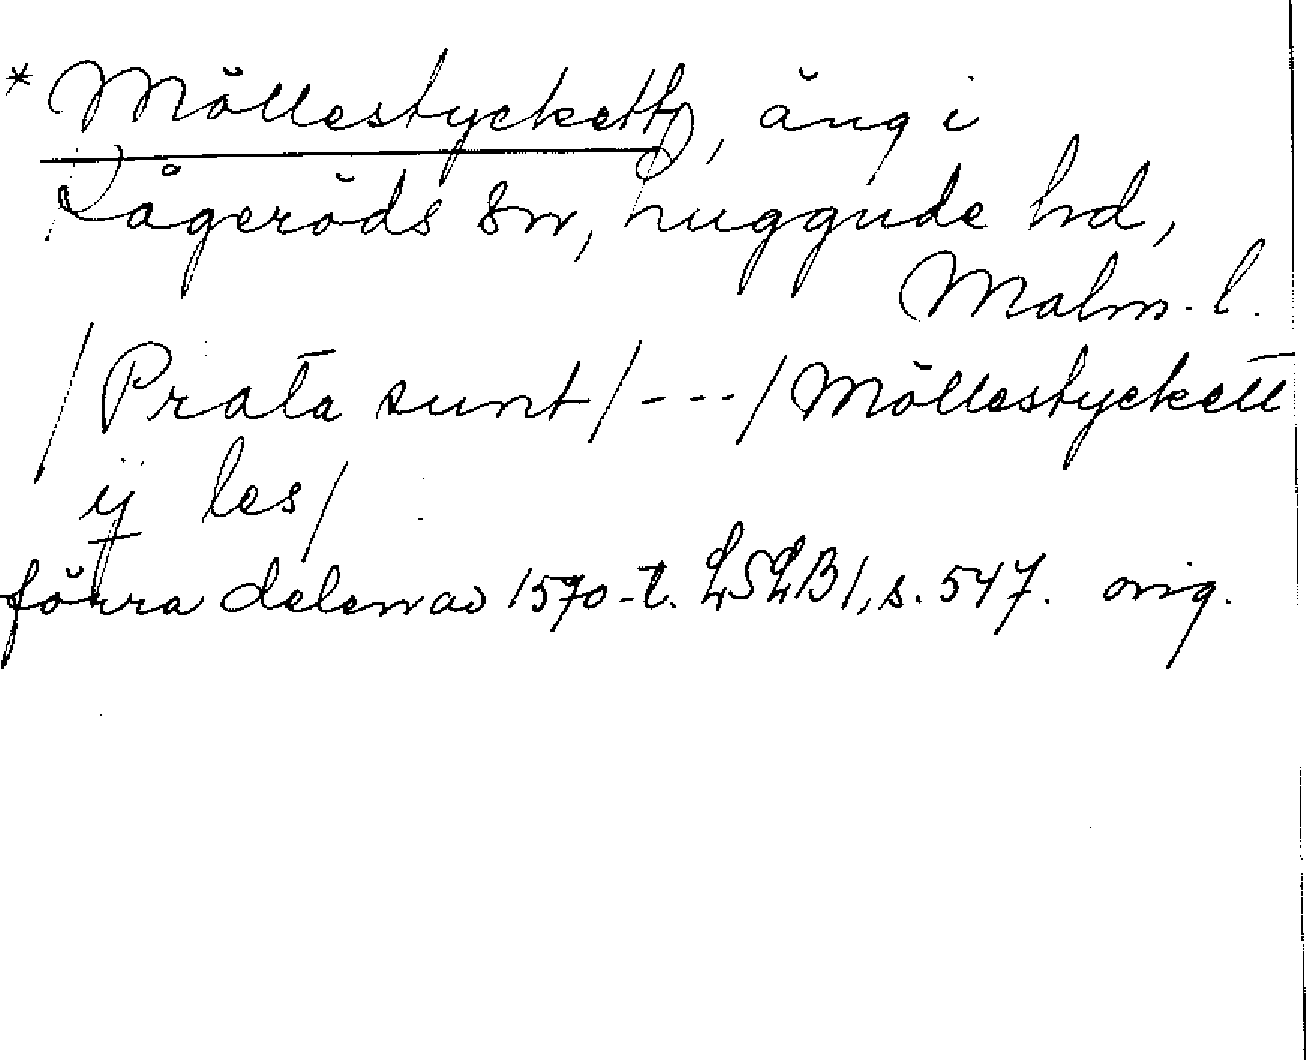 * Möllestyckett, äng i
Kågeröds sn, Luggude hd,
Malm. l.
/Prata sunt/---/Möllestyckett
ij les/
förra delen av 1570-t. LSLB1, s. 547. orig.